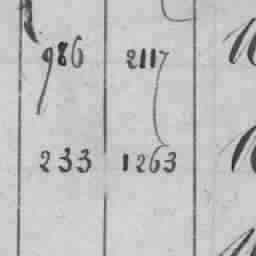 986 2117
233 1263